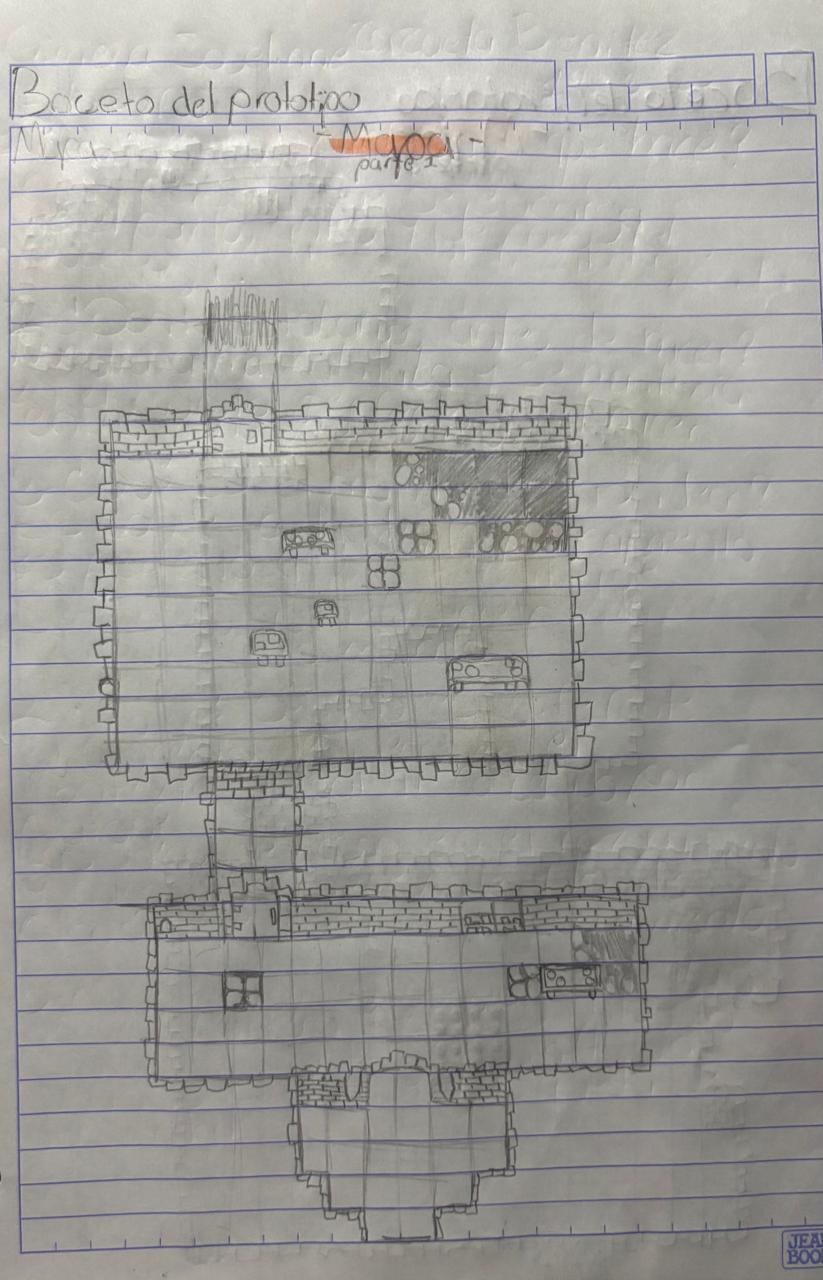 Boceto del prototipo
- Mapa -
parte 1
JEAN
BOOK